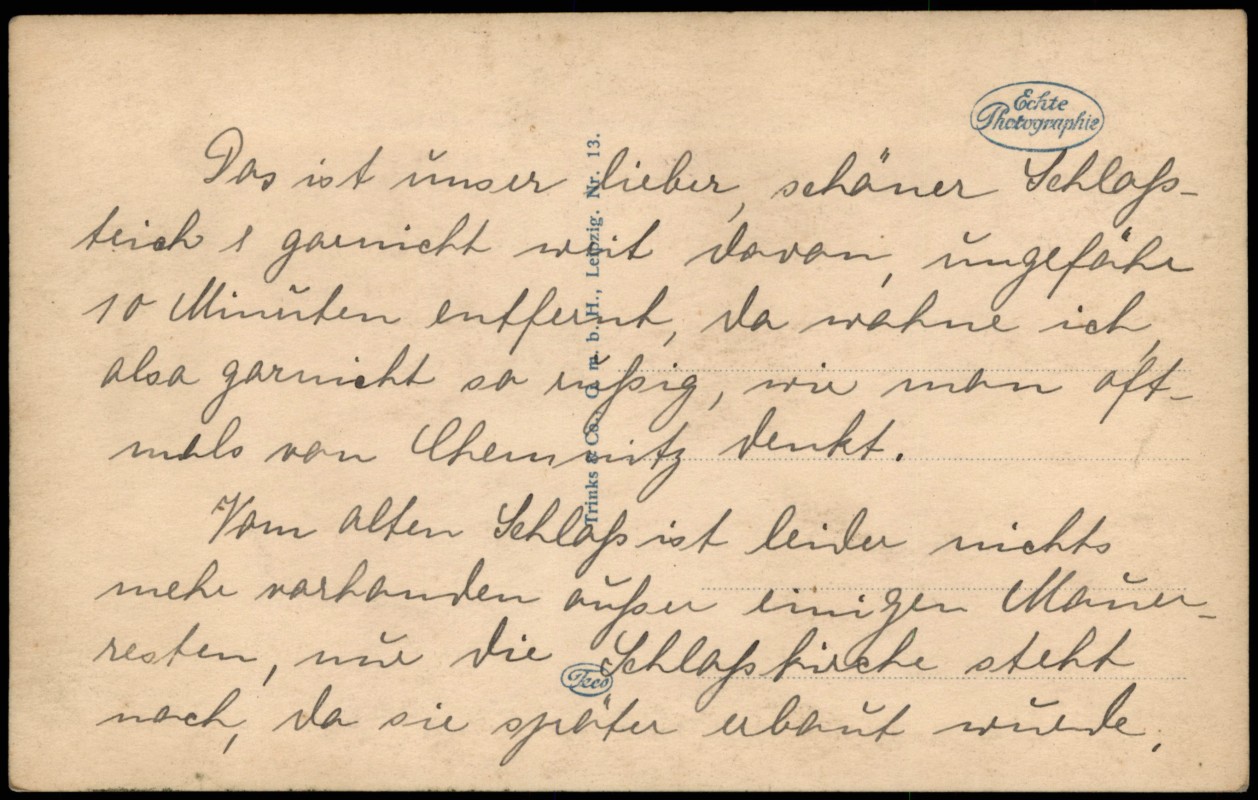 Echte
Photographie
Das ist unser lieber, schöner Schloß-
teich & garnicht weit davon, ungefähr
10 Minuten entfernt, da wohne ich,
also garnicht so rußig, wie man oft-
mals von Chemnitz denkt.
Vom alten Schloß ist leider nichts
mehr vorhanden außer einigen Mauer-
resten, nur die Schloßkirche steht
noch, da sie später erbaut wurde.
Trinks & Co., G. m. b. H., Leipzig. Nr. 13.
Trco